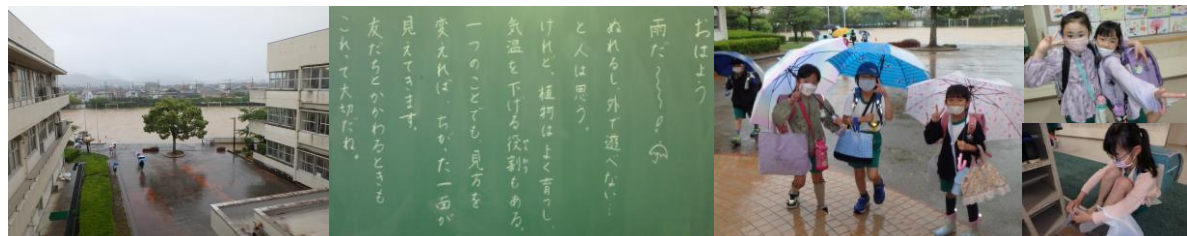 おはよう
雨だ〜〜〜！
ぬれるし、外で遊べない…
と人は思う。
けれど、植物はよく育つし、
気温を下げる役割もある。
やくわり
一つのことでも見方を
変えれば、ちがった一面が
見えてきます。
友だちとかかわるときも
これって大切だね。